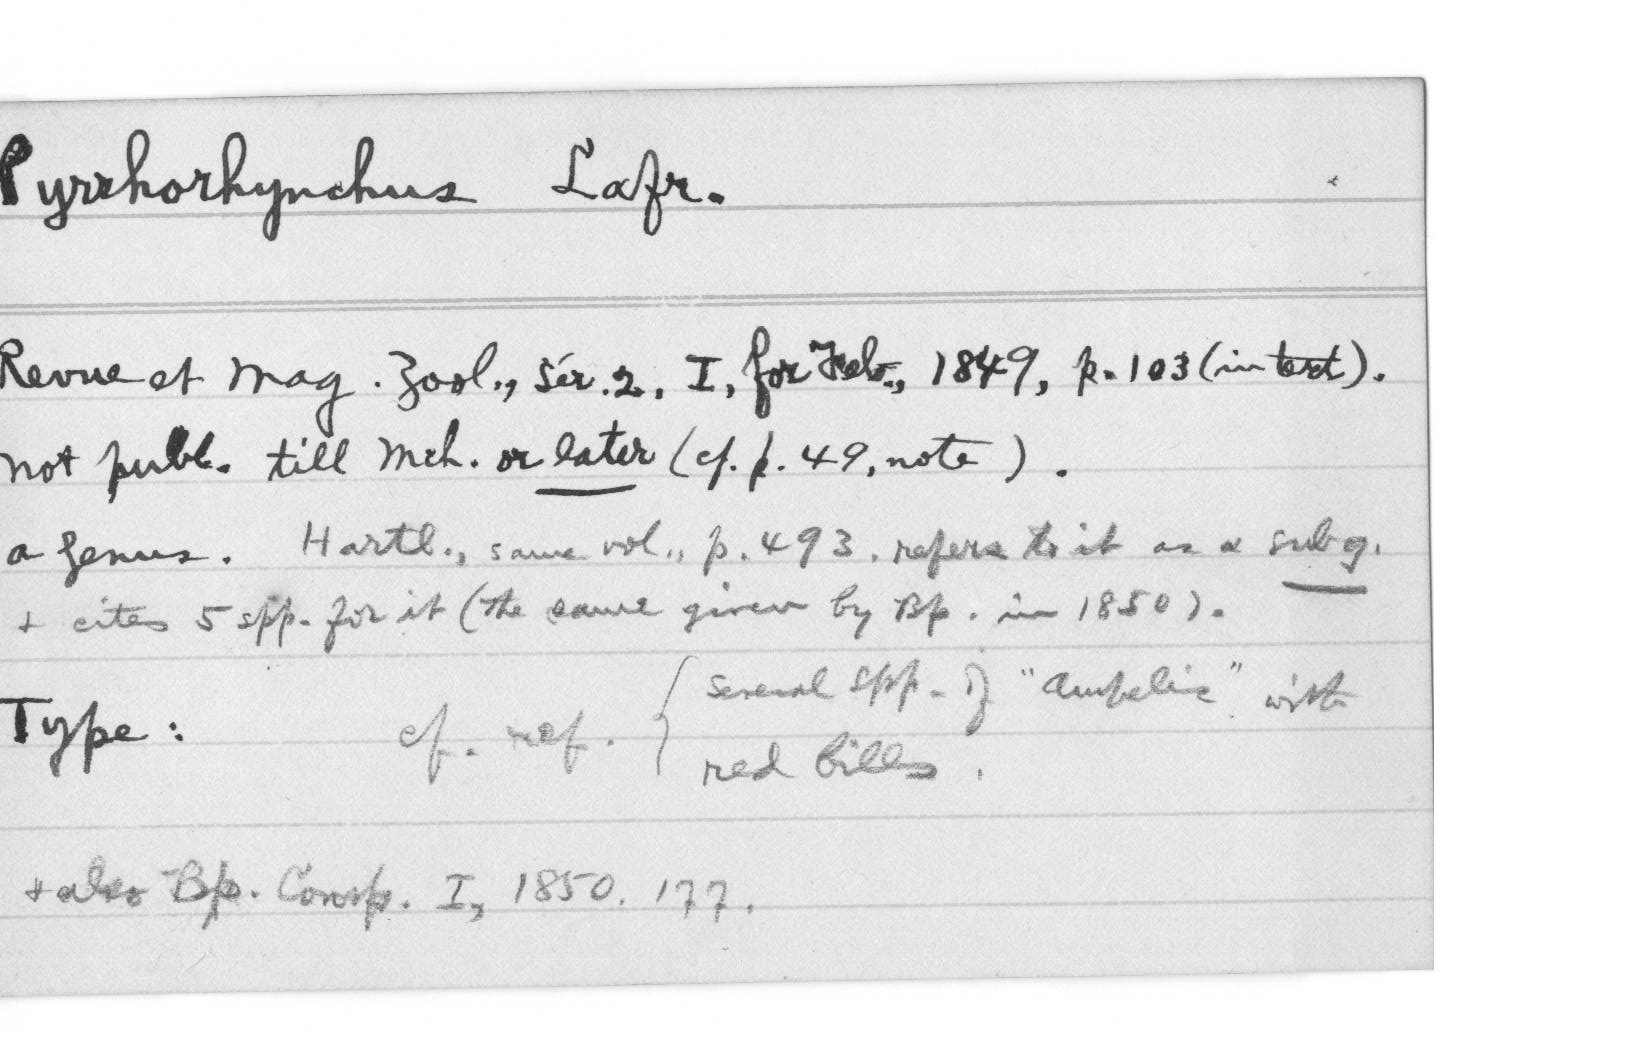 Pyrrhorhynchus Lafr.
Revue et Mag. Zool., sér. 2, I, for Feb., 1849, p. 103 (in text).
not publ. till Mch. or later (cf. p. 49, note).
a genus. Hartl., same vol., p. 493. refers to it as a subg.
+ cites 5 spp. for it (the same given by Bp. in 1850).
Type: cf. ref. { several spp. of "Ampelis" with
red bills.
+ also Bp. Consp. I, 1850. 177.